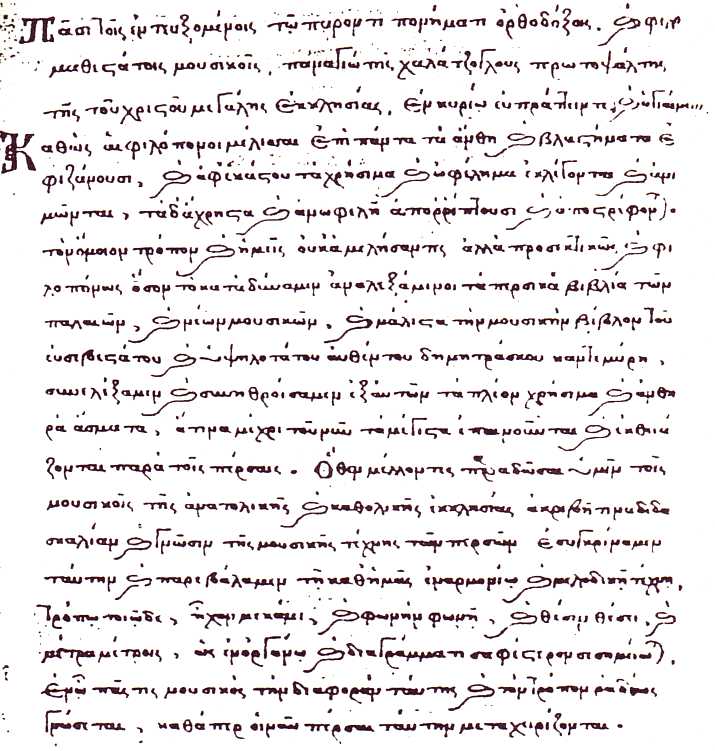 Πᾶσι τοῖς ἐντευξομένοις τῷ παρόντι πονήματι ὀρθοδόξοις, καὶ φιλο
μαθεστάτοις μουσικοῖς, παναγιώτης χαλάτζογλους πρωτοψάλτης
τῆς τοῦ χριστοῦ μεγάλης ἐκκλησίας, ἐν κυρίῳ εὐπράττειν τε, καὶ ὑγιαίνειν
Καθὼς αἱ φιλόπονοι μέλισσαι ἐπὶ πάντα τὰ ἄνθη καὶ βλαστήματα ἐ
φιζάνουσι, καὶ ἀφ' ἑκάστου τὰ χρήσιμα καὶ ὠφέλιμα ἐκλέγονται καὶ ἀνι
μῶνται, τὰ δ' ἄχρηστα καὶ ἀνωφελῆ ἀπορρίπτουσι καὶ ἀποστρέφονται·
τὸν ὅμοιον τρόπον καὶ ἡμεῖς οὐκ ἀμελήσαντες ἀλλὰ προσεκτικῶς, καὶ φι
λοπόνως ὅσον τὸ κατὰ δύναμιν ἀναλεξάμενοι τὰ περσικὰ βιβλία τῶν
παλαιῶν, καὶ νέων μουσικῶν, καὶ μάλιστα τὴν μουσικὴν βίβλον τοῦ
εὐσεβεστάτου καὶ ὑψηλοτάτου αὐθέντου δημητράσκου καντεμύρη,
συνελέξαμεν καὶ συνηθροίσαμεν ἐξ αὐτῶν τὰ πλέον χρήσιμα καὶ ἀνθη
ρὰ ἄσματα, ἅτινα μέχρι τοῦ νῦν τὰ μέγιστα ἐπαινοῦνται καὶ ἐκθειά
ζονται παρὰ τοῖς πέρσαις. Ὅθεν μέλλοντες παραδῶσαι ὑμῖν τοῖς
μουσικοῖς τῆς ἀνατολικῆς καὶ καθολικῆς ἐκκλησίας ἀκριβῆ τινὰ διδα
σκαλίαν καὶ γνῶσιν τῆς μουσικῆς τέχνης τῶν περσῶν ἐσυγκρίναμεν
ταύτην καὶ παρεβάλαμεν τῇ καθ' ἡμᾶς ἐναρμονίῳ καὶ μελοδικῇ τέχνῃ,
τρόπῳ τοιῷδε, ἦχον μεκάμι, καὶ φωνὴν φωνῇ, καὶ θέσιν θέσει, καὶ
μέτρα μέτροις, ὡς ἐν ὀργάνῳ καὶ διαγράμματι σαφέστερον σεσημείωται,
ἐν ᾧ πᾶς τις μουσικὸς τὴν διαφορὰν ταύτης καὶ τὸν τρόπον ῥᾳδίως
γνώσεται, καθάπερ οἱ μὲν πέρσαι ταύτην μεταχειρίζονται.